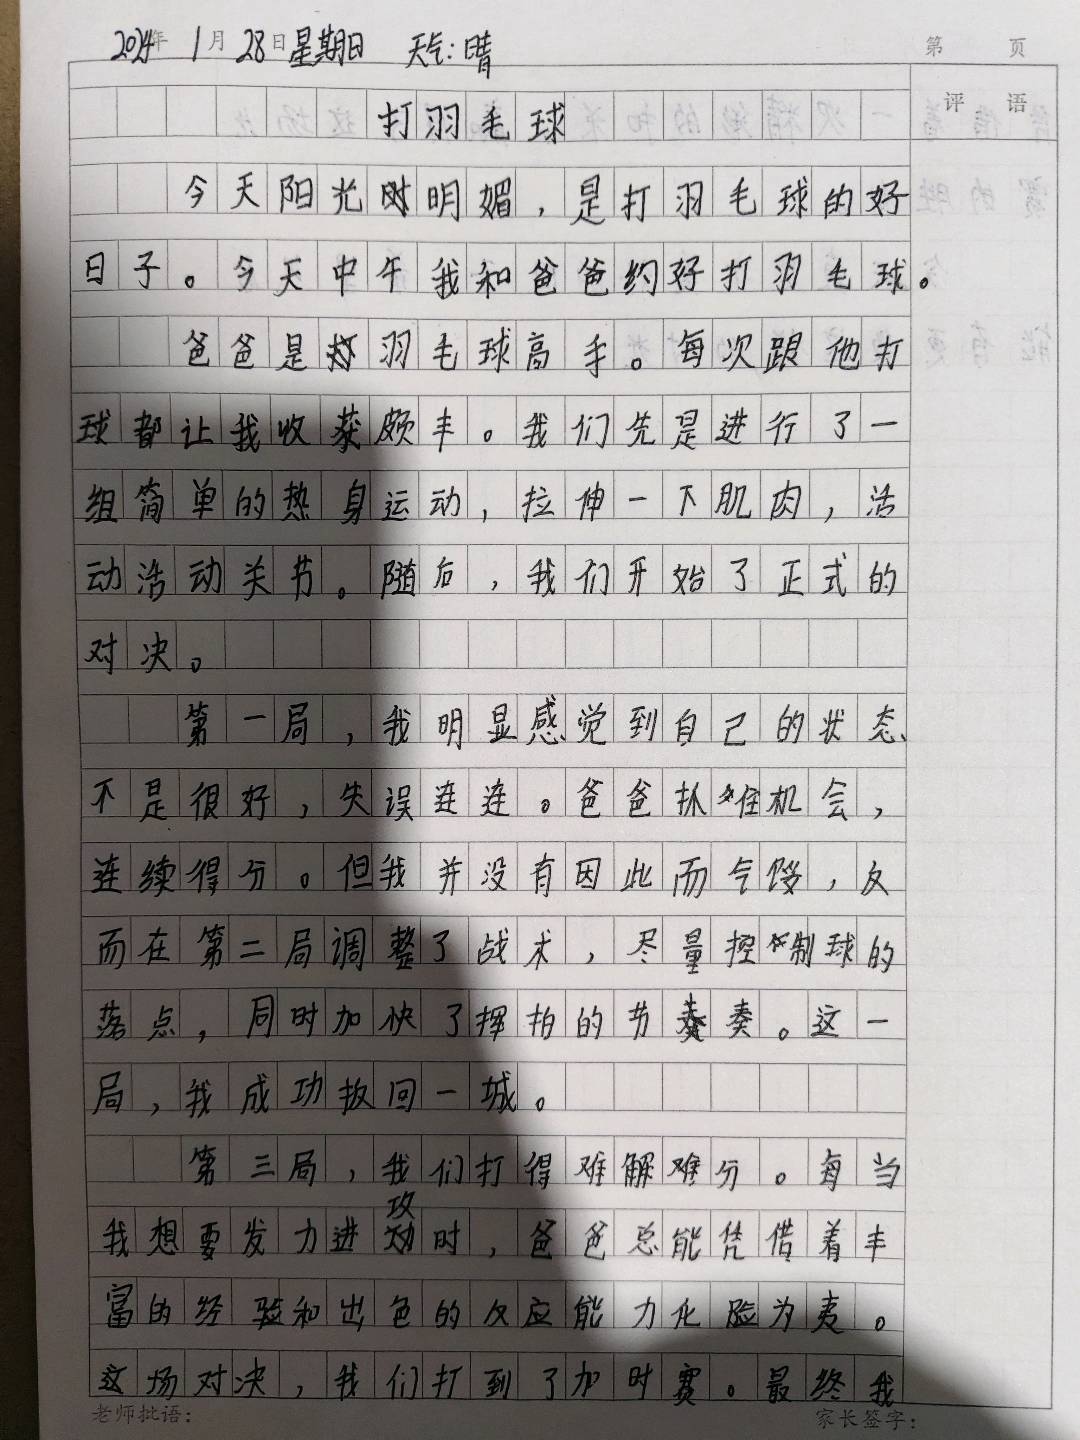 2024年 1月 28日 星期日 天气:晴
第 页
评 语
打羽毛球
今天阳光明媚,是打羽毛球的好
日子。今天中午我和爸爸约好打羽毛球。
爸爸是羽毛球高手。每次跟他打
球都让我收获颇丰。我们先是进行了一
组简单的热身运动,拉伸一下肌肉,活
动活动关节。随后,我们开始了正式的
对决。
第一局,我明显感觉到自己的状态
不是很好,失误连连。爸爸抓准机会,
连续得分。但我并没有因此而气馁,反
而在第二局调整了战术,尽量控制球的
落点,同时加快了挥拍的节奏。这一
局,我成功扳回一城。
第三局,我们打得难解难分。每当
我想要发力进攻时,爸爸总能凭借着丰
富的经验和出色的反应能力化险为夷。
这场对决,我们打到了加时赛。最终我
老师批语: 家长签字: